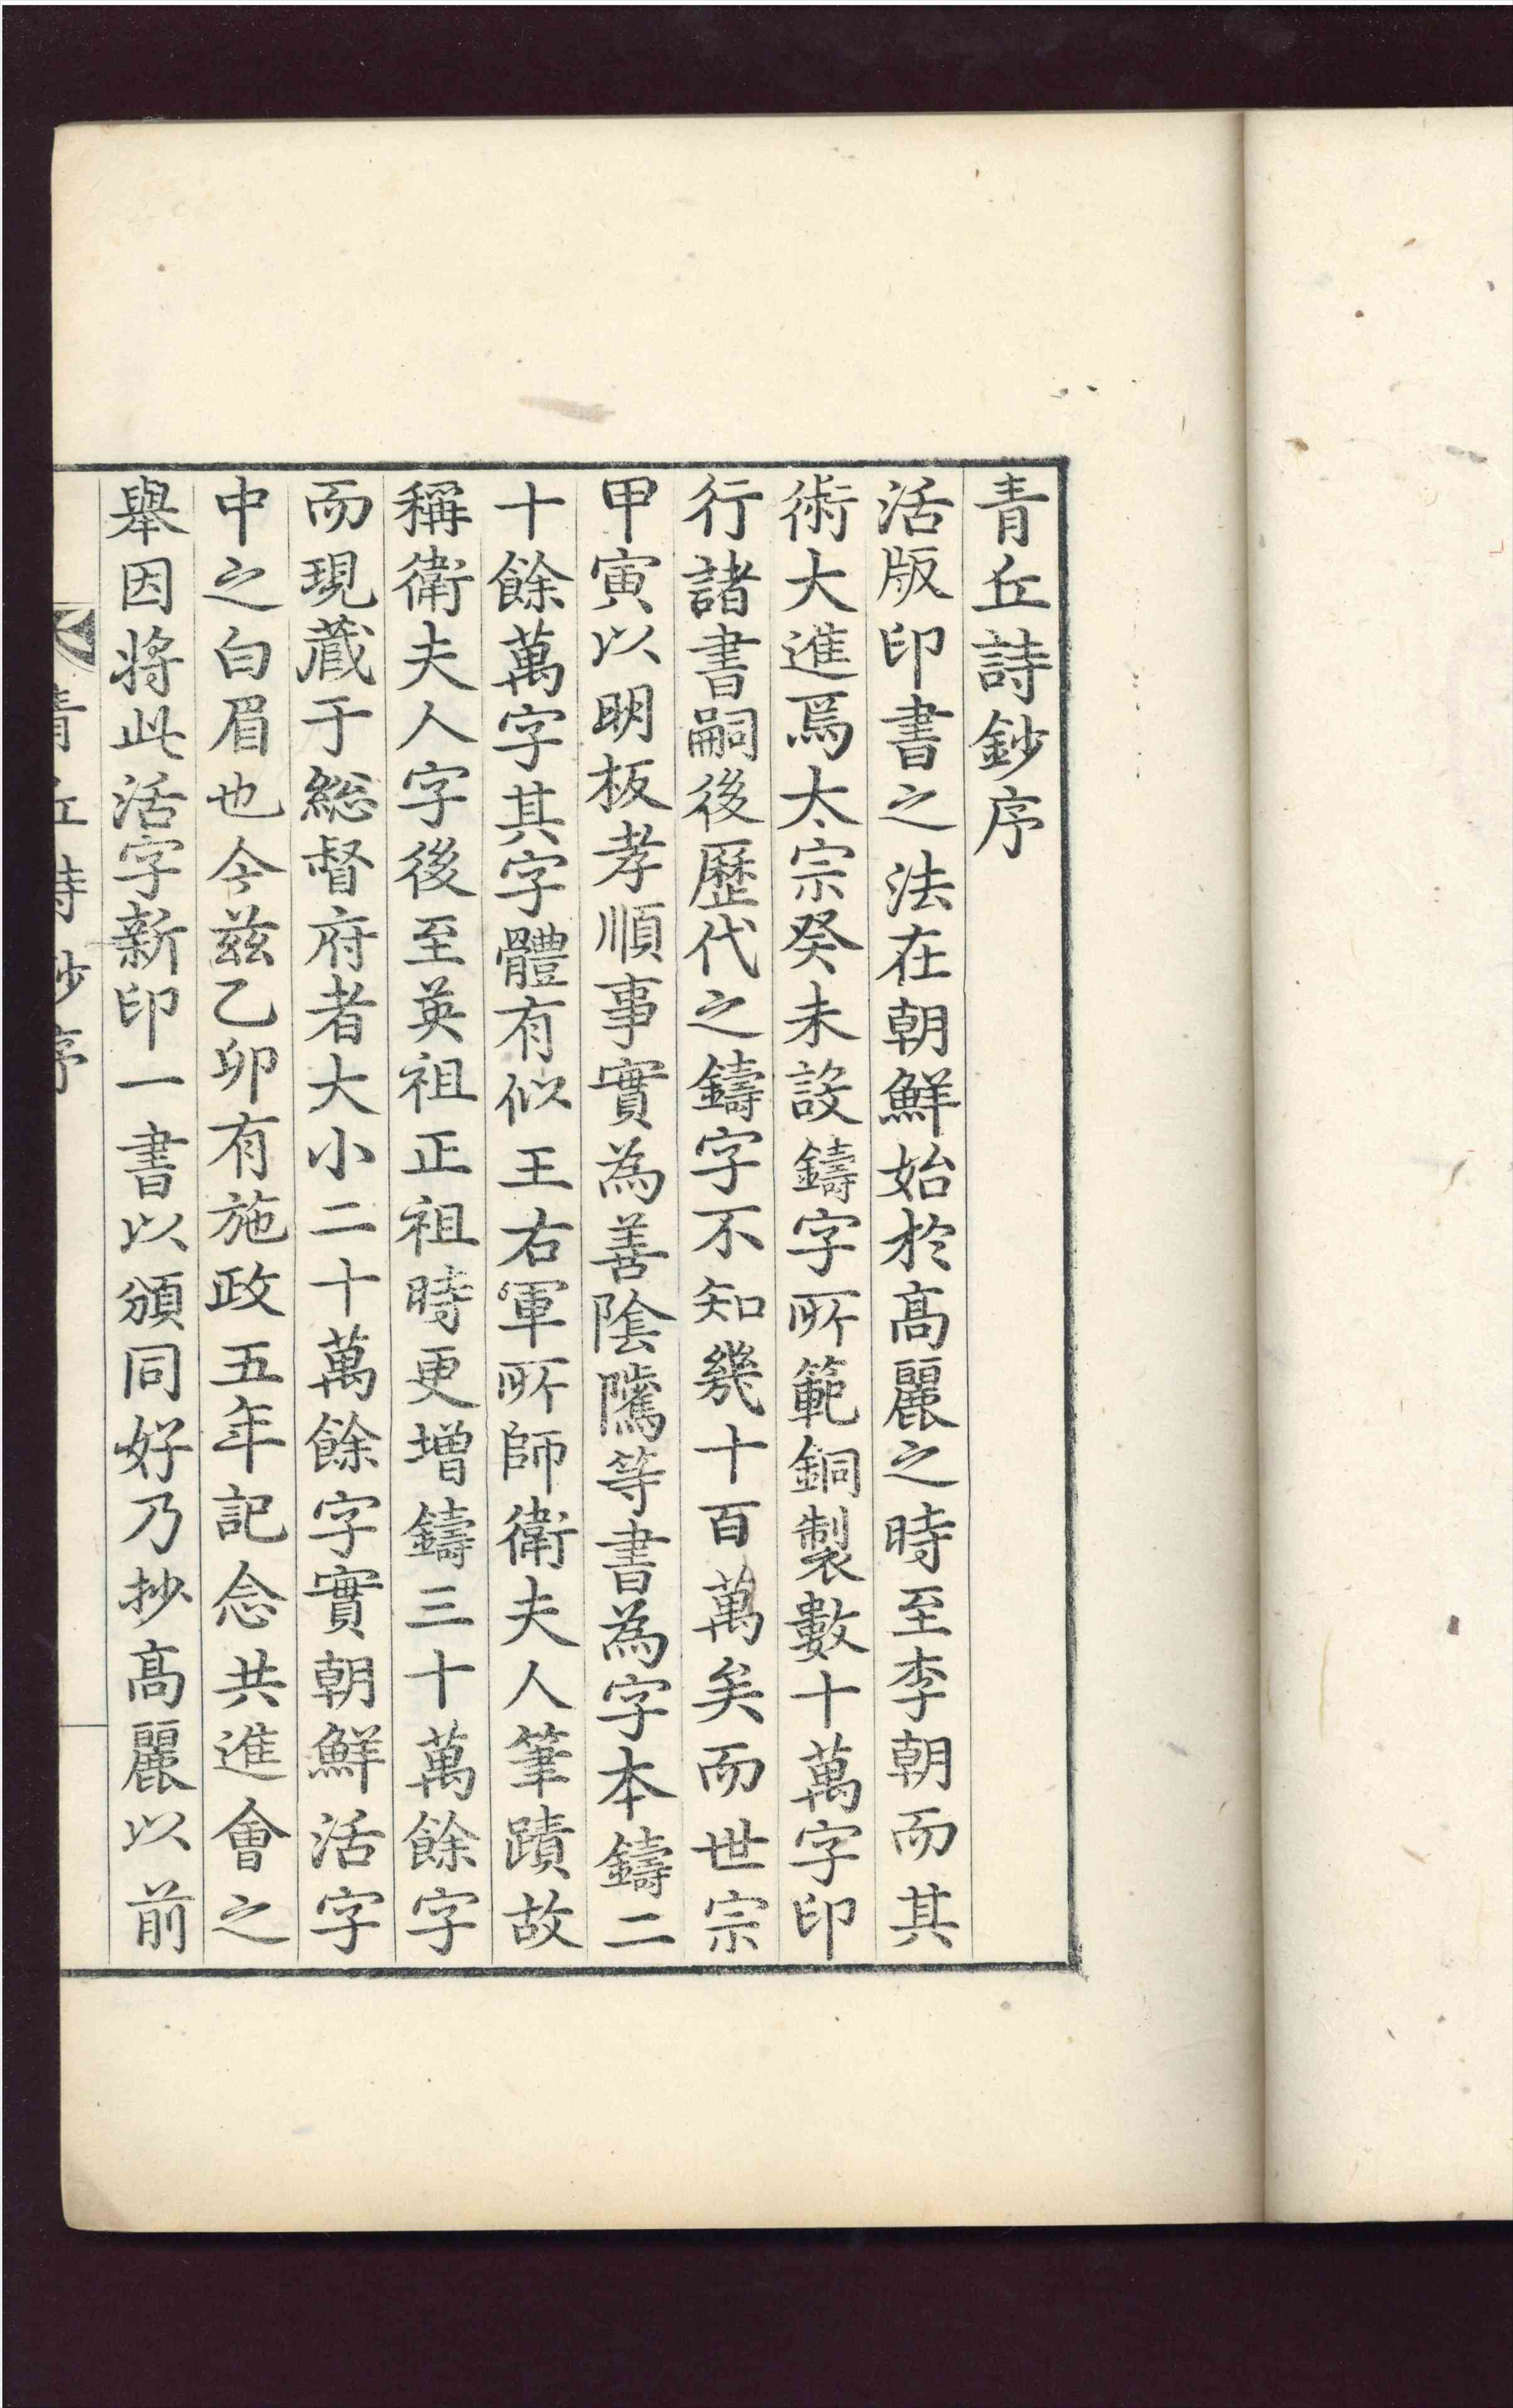 青丘詩鈔序
活版印書之法在朝鮮始於高麗之時至李朝而其
術大進焉太宗癸未設鑄字所範銅製數十萬字印
行諸書嗣後歷代之鑄字不知幾十百萬矣而世宗
甲寅以明板孝順事實為善陰隲等書為字本鑄二
十餘萬字其字體有似王右軍所師衛夫人筆蹟故
稱衛夫人字後至英祖正祖時更增鑄三十萬餘字
而現藏于総督府者大小二十萬餘字實朝鮮活字
中之白眉也今茲乙卯有施政五年記念共進會之
舉因将此活字新印一書以頒同好乃抄高麗以前
青丘詩鈔序